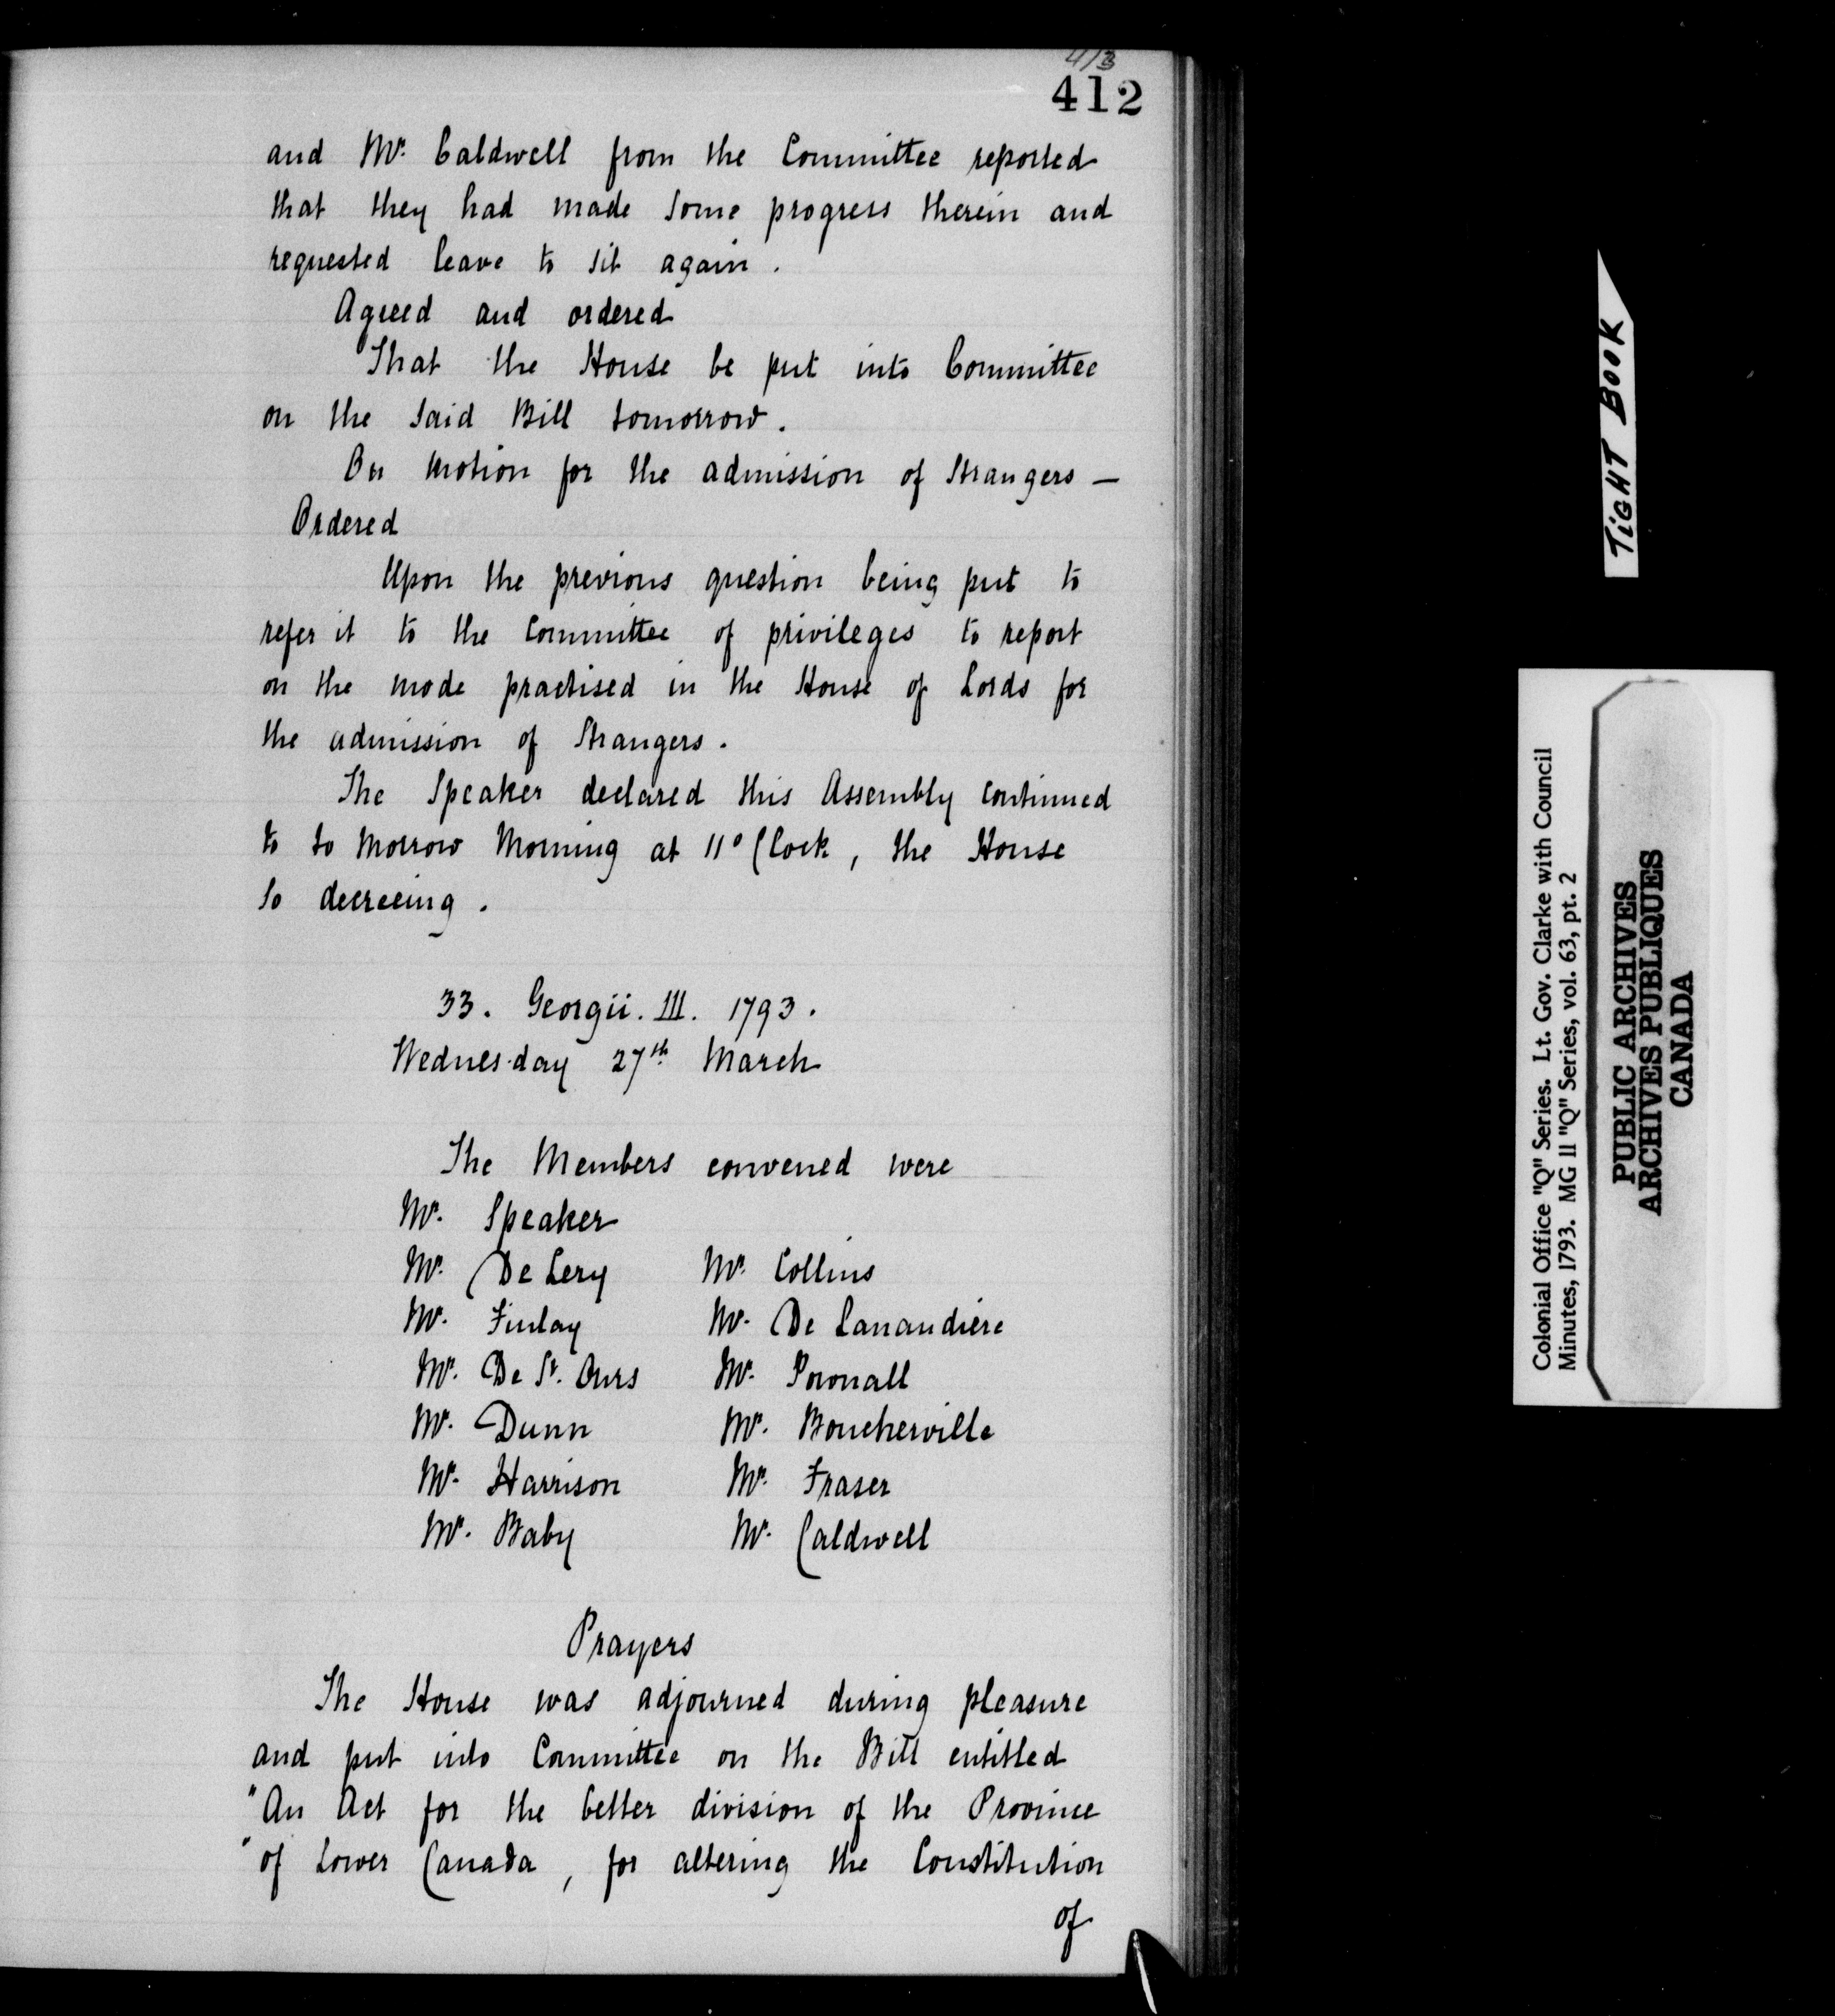 413
412
and Mr. Caldwell from the Committee reported
that they had made some progress therein and
requested leave to sit again.
Agreed and ordered
That the House be put into Committee
on the said Bill tomorrow.
On motion for the admission of Strangers —
Ordered
Upon the previous question being put to
refer it to the Committee of privileges to report
on the mode practised in the House of Lords for
the admission of Strangers.
The Speaker declared this Assembly continued
to to Morrow Morning at 11 o'Clock, the House
so decreeing.
33. Georgii. III. 1793.
Wednesday 27th March
The Members convened were
Mr. Speaker
Mr. De Lery Mr. Collins
Mr. Finlay Mr. De Lanaudière
Mr. De St. Ours Mr. Pownall
Mr. Dunn Mr. Boucherville
Mr. Harrison Mr. Fraser
Mr. Baby Mr. Caldwell
Prayers
The House was adjourned during pleasure
and put into Committee on the Bill entitled
"An Act for the better division of the Province
"of Lower Canada, for altering the Constitution
of
TIGHT BOOK
Colonial Office "Q" Series. Lt. Gov. Clarke with Council
Minutes, 1793. MG 11 "Q" Series, vol. 63, pt. 2
PUBLIC ARCHIVES
ARCHIVES PUBLIQUES
CANADA